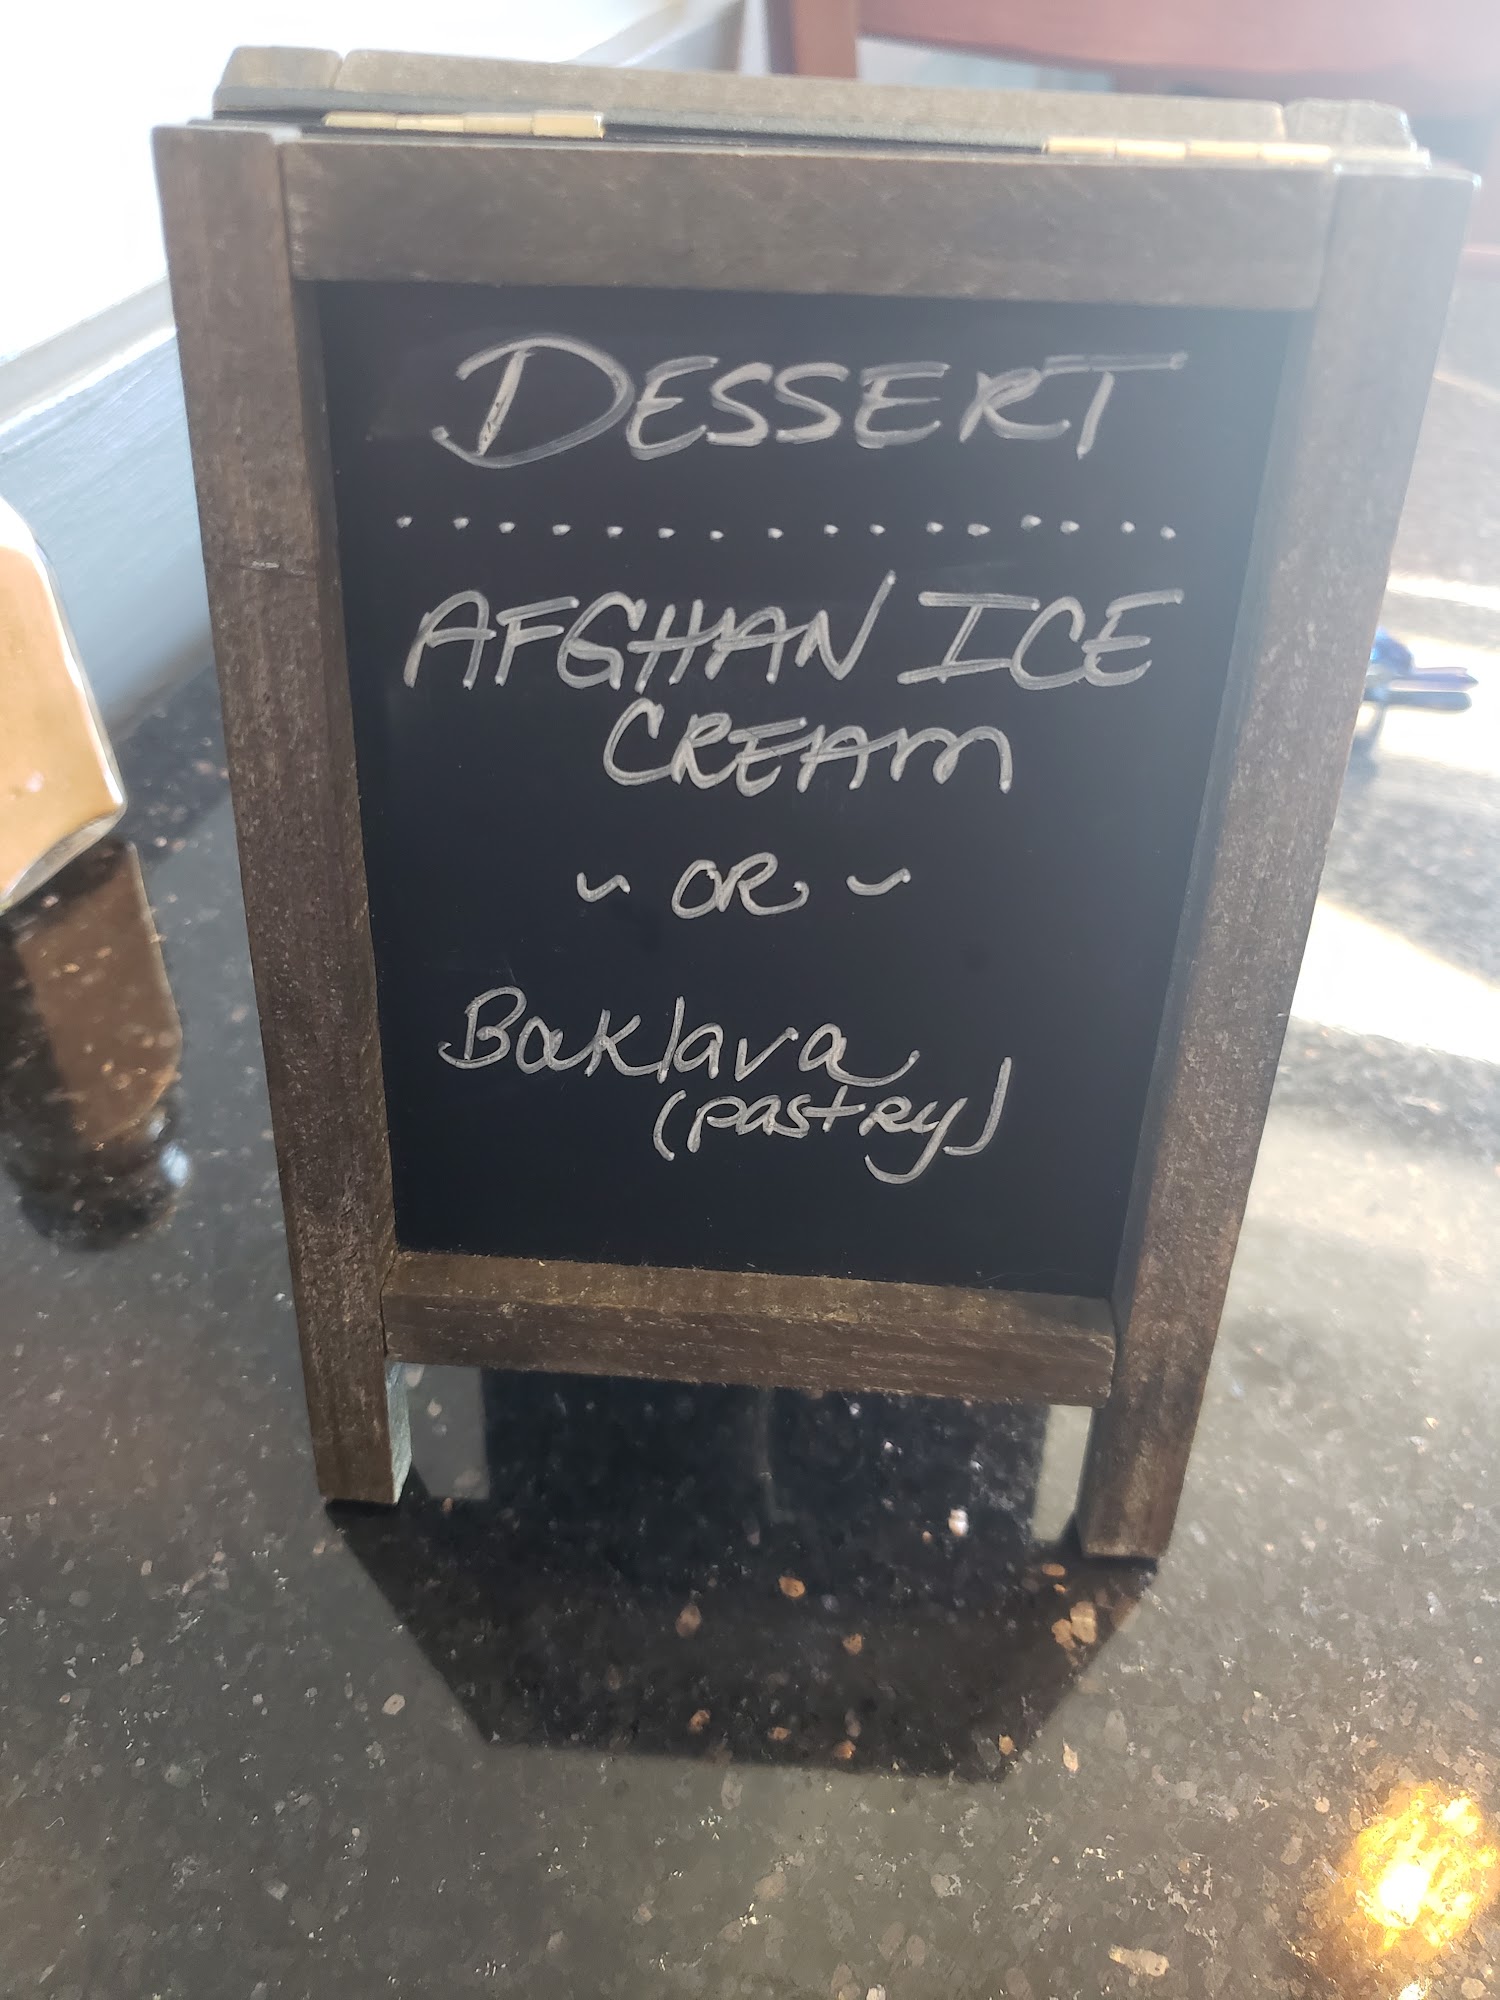 DESSERT
..................
AFGHAN ICE
CREAM
~ OR ~
Baklava
(pastry)